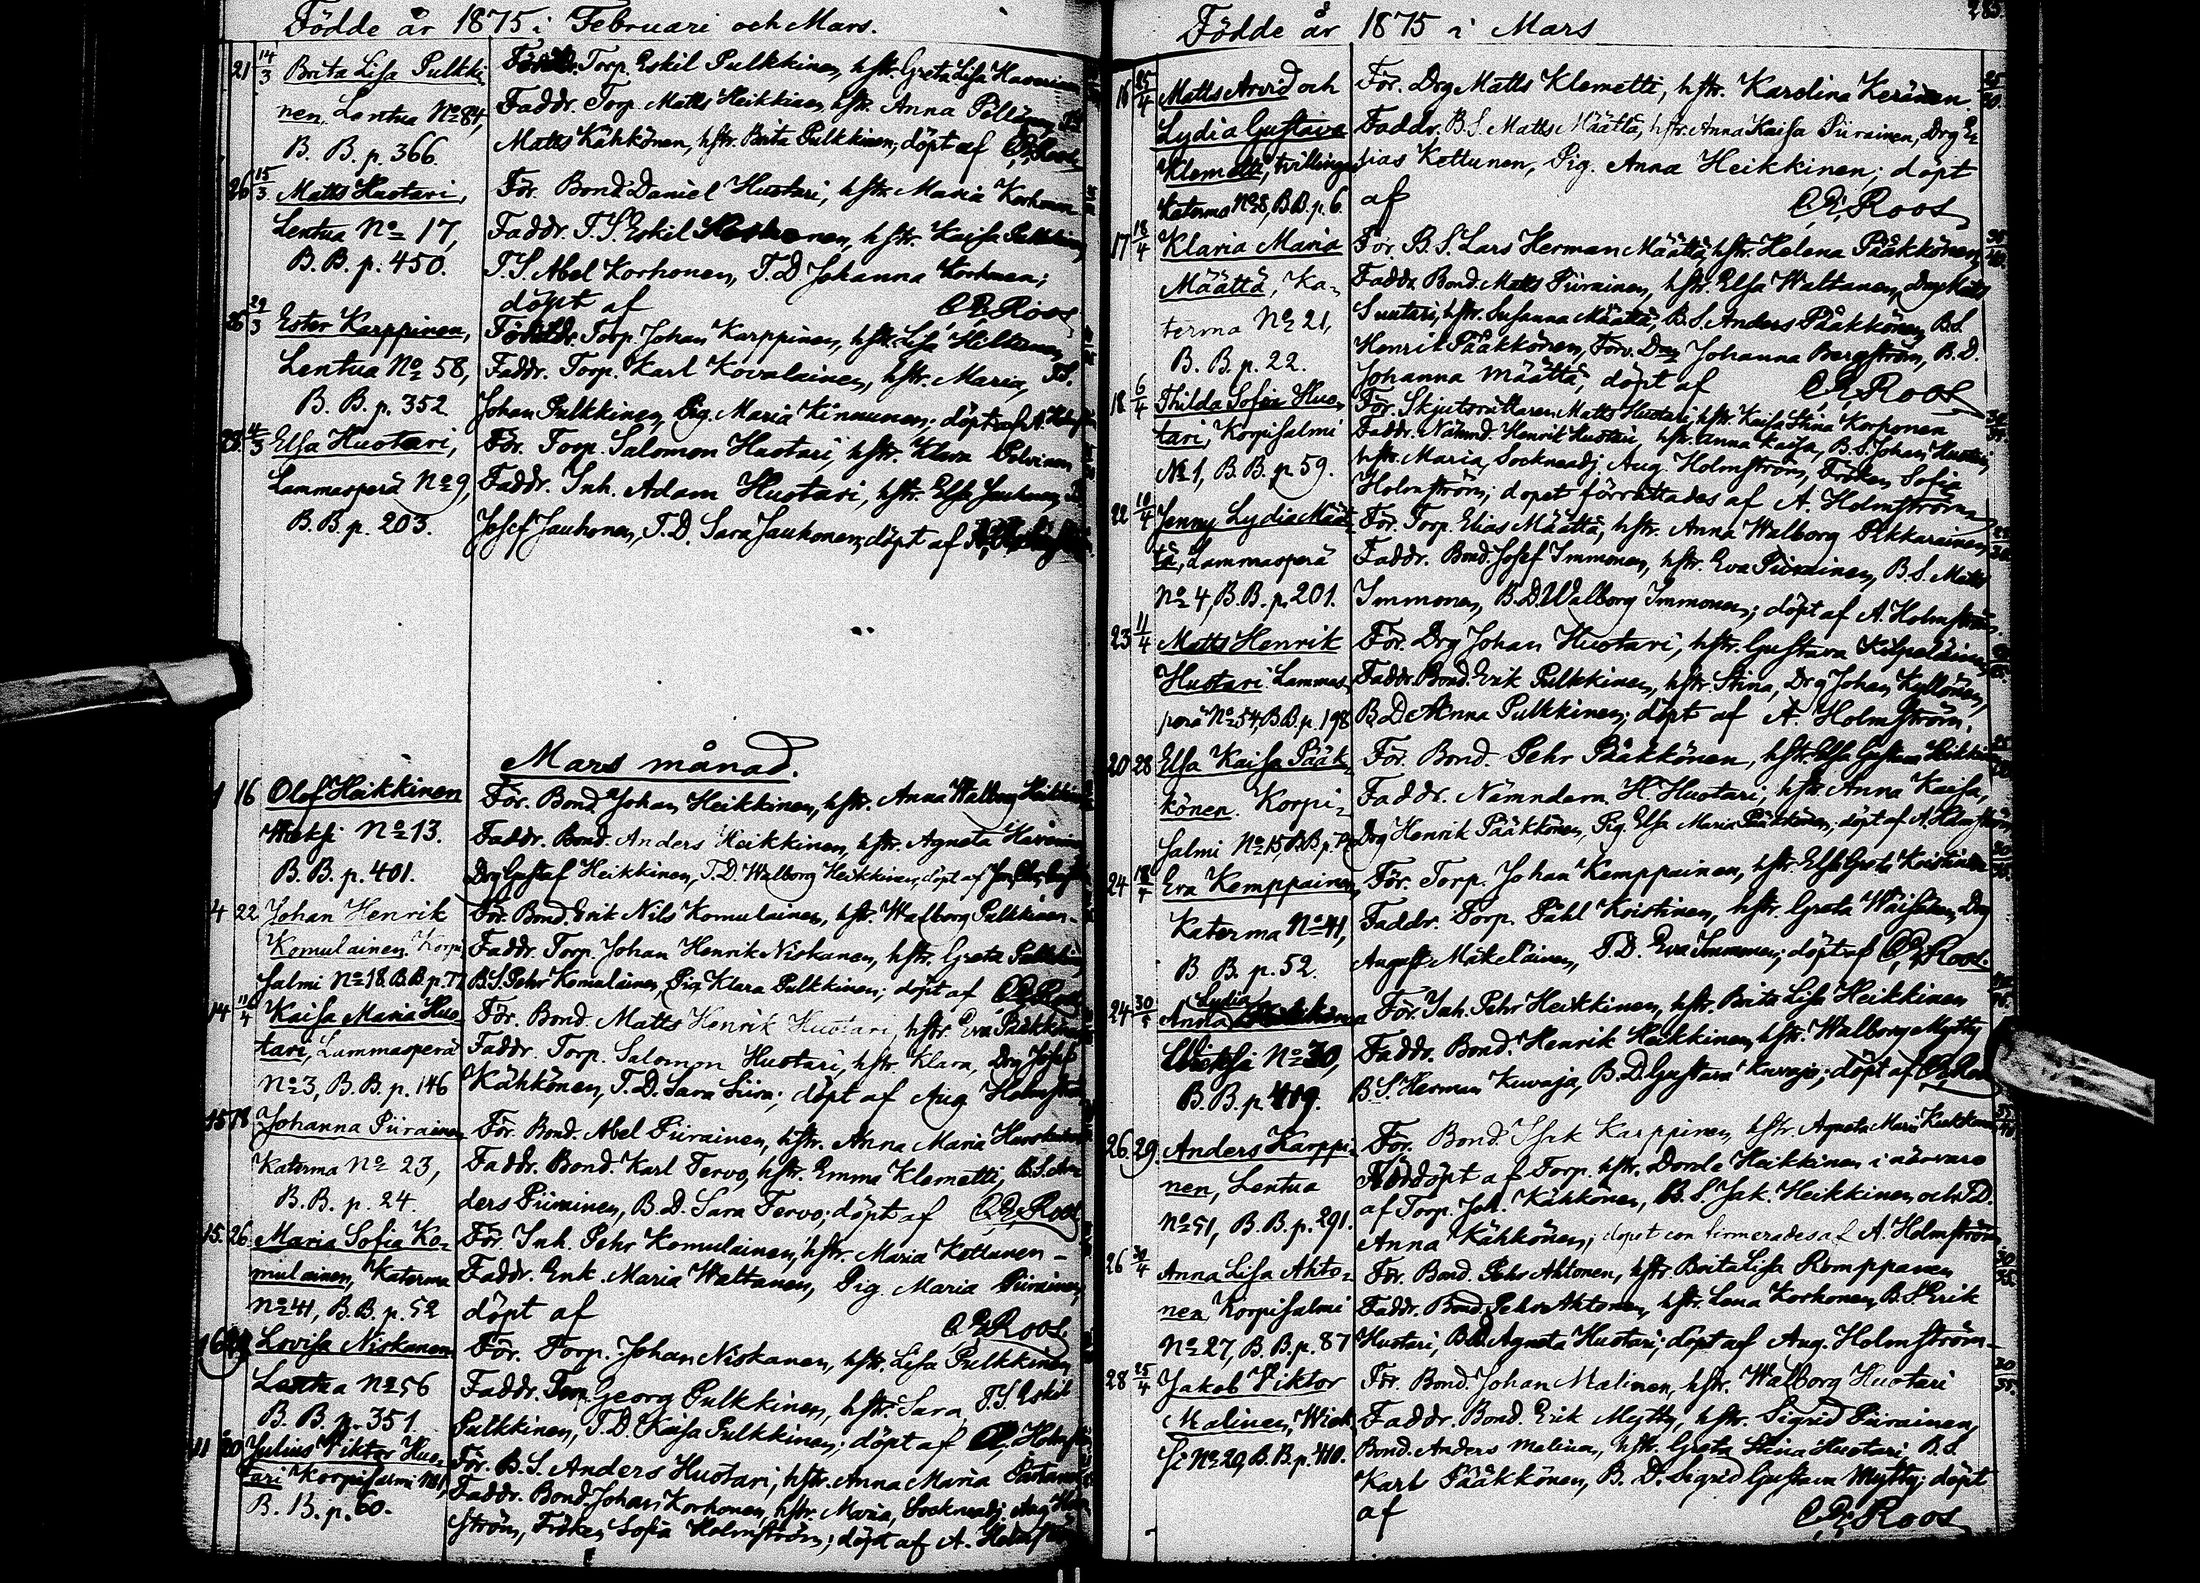 Födde år 1875 i Februari och Mars.
21 14/3 Brita Lisa Pulkki-
nen, Lentua No 84,
B. B. p. 366.
Föräldr. Torp. Eskil Pulkkinen, hstr. Greta Lisa Haverinen
Faddr. Torp. Matts Heikkinen, hstr. Anna
Matts Kähkönen, hstr. Brita Pulkkinen; döpt af C. R. Roos
26 15/3 Matts Huotari,
Lentua No 17,
B. B. p. 450.
För. Bond. Daniel Huotari, hstr. Maria Korhonen
Faddr. T. S. Eskil hstr. Kaisa Pulkkinen
T. S. Abel Korhonen, T. D. Johanna Korhonen;
döpt af C. R. Roos
26 29/3 Ester Karppinen,
Lentua No 58,
B. B. p. 352.
Föräldr. Torp. Johan Karppinen, hstr. Lisa Hiltunen
Faddr. Torp. Karl Kovalainen, hstr. Maria, T. S.
Johan Pulkkinen, Pig. Maria Kinnunen; döpt af A.
28 4/3 Elsa Huotari,
Lammasperä No 9,
B. B. p. 203.
För. Torp. Salomon Huotari, hstr. Klara Polvinen
Faddr. Inh. Adam Huotari, hstr. Elsa Jauhonen,
Josef Jauhonen, T. D. Sara Jauhonen; döpt af
Mars månad.
1 16 Olof Heikkinen
Wieksi No 13.
B. B. p. 401.
För. Bond. Johan Heikkinen, hstr. Anna Walborg Heikkinen
Faddr. Bond. Anders Heikkinen, hstr. Agneta Haverinen
Drg Gustaf Heikkinen, T. D. Walborg Heikkinen, döpt af
4 22 Johan Henrik
Komulainen. Korpi
salmi No 18. B. B. p. 77
För. Bond. Erik Nils Komulainen, hstr. Walborg Pulkkinen-
Faddr. Torp. Johan Henrik Niskanen, hstr. Greta Pulkkinen
B. S. Pehr Komulainen, Pig. Klara Pulkkinen; döpt af C. R. Roos
14 11/4 Kaisa Maria Huo-
tari, Lammasperä
No 3, B. B. p. 146
För. Bond. Matts Henrik Huotari, hstr. Eva Pääkkönen
Faddr. Torp. Salomon Huotari, hstr. Klara, Drg Josef
Kähkönen, T. D. Sara Siira; döpt af Aug Holmström
15 18 Johanna Piirainen
Katerma No 23,
B. B. p. 24.
För. Bond. Abel Piirainen, hstr. Anna Maria
Faddr. Bond. Karl Tervo, hstr. Emma Klemetti, B. S. An-
ders Piirainen, B. D. Sara Tervo; döpt af C. R. Roos
15. 26. Maria Sofia Ko-
mulainen, Katerma
No 41, B. B. p. 52
För. Inh. Pehr Komulainen, hstr. Maria Kettunen-
Faddr. Enk. Maria Waltanen, Pig. Maria Piirainen,
döpt af C. R. Roos.
16 Lovisa Niskanen
Lentua No 56
B. B. p. 351.
För. Torp. Johan Niskanen, hstr. Lisa Pulkkinen
Faddr. Torp. Georg Pulkkinen, hstr. Sara, T. S. Eskil
Pulkkinen, T. D. Kaisa Pulkkinen; döpt af A. Holmström
11 20 Julius Viktor Huo-
tari Korpisalmi No 1,
B. B. p. 60.
För. B. S. Anders Huotari, hstr. Anna Maria Partanen
Faddr. Bond. Johan Korhonen, hstr. Maria, Socknadj. Aug Holm-
ström, Fröken Sofia Holmström; döpt af A. Holmström
Födde år 1875 i Mars
285.
16 25/4 Matts Arvid och
Lydia Gustava
Klemetti, tvillingar
Katerma No 8, B. B. p. 6.
För. Drg Matts Klemetti, hstr. Karolina Keränen.
Faddr. B. S. Matts Määttä, hstr. Anna Kaisa Piirainen, Drg E-
lias Kettunen, Pig. Anna Heikkinen; döpt
af C. R. Roos
17 18/4 Klaria Maria
Määttä, Ka-
terma No 21,
B. B. p. 22.
För. B. S. Lars Herman Määttä, hstr. Helena Pääkkönen,
Faddr. Bond. Matts Piirainen, hstr. Elsa Waltanen, Drg Matts
hstr. Susanna Määttä, B. S. Anders Pääkkönen, B. S.
Henrik Pääkkönen, Johanna Bergström, B. D.
Johanna Määttä; döpt af C. R. Roos
18 6/4 Thilda Sofia Huo-
tari, Korpisalmi
No 1, B. B. p. 59.
För. Skjutsrättaren Matts Huotari, hstr. Kaisa Stina Korhonen
Faddr. Nämnd. Henrik Huotari, hstr. Anna Kaisa, B. S. Johan Huotari,
hstr. Maria, Socknadj. Aug. Holmström, Fröken Sofia
Holmström; dopet förrättades af A. Holmström
22 10/4 Jenny Lydia Määt-
tä, Lammasperä
No 4, B. B. p. 201.
För. Torp. Elias Määttä, hstr. Anna Walborg Pikkarainen,
Faddr. Bond. Josef Immonen, hstr. Eva Piirainen, B. S. Matts
Immonen, B. D. Walborg Immonen; döpt af A. Holmström.
23 11/4 Matts Henrik
Huotari. Lammas-
perä No 54, B. B. p. 198
För. Drg Johan Huotari, hstr. Gustava Kilpeläinen
Faddr. Bond. Erik Pulkkinen, hstr. Stina, Drg Johan Kyllönen,
B. D. Anna Pulkkinen; döpt af A. Holmström.
20 28 Elsa Kaisa Pääk-
könen. Korpi-
salmi No 15, B. B. p.
För. Bond. Pehr Pääkkönen, hstr. Elsa Gustava Heikkinen
Faddr. Nämndem. H Huotari, hstr. Anna Kaisa,
Drg Henrik Pääkkönen, Pig. Elsa Maria Pääkkönen; döpt af A. Holmström
24 18/4 Eva Kemppainen,
Katerma No 41,
B. B. p. 52.
För. Torp. Johan Kemppainen, hstr. Elsa Greta Koistinen
Faddr. Torp. Påhl Koistinen, hstr. Greta Waisanen, Drg
August Mäkeläinen, T. D. Eva Immonen; döpt af C. R. Roos.
24 30/5 Anna Lydia Heikkinen
Wieksi No 30,
B. B. p. 419.
För. Inh. Pehr Heikkinen, hstr. Brita Lisa Heikkinen
Faddr. Bond. Henrik Heikkinen, hstr. Walborg Mytty
B. S. Herman Kuvaja, B. D. Gustava Kuvaja; döpt af C. R. Roos
26 29. Anders Karppi-
nen, Lentua
No 51, B. B. p. 291.
För. Bond. Isak Karppinen, hstr. Agneta Maria
Nöddöpt af Torp. hstr. Dorde Heikkinen i närvaro
af Torp. Joh. Kähkönen, B. S. Jak. Heikkinen och T. D.
Anna Kähkönen; dopet confirmerades af A. Holmström
26 30/4 Anna Lisa Ahto-
nen Korpisalmi
No 27, B. B. p. 87
För. Bond. Pehr Ahtonen, hstr. Brita Lisa Romppanen
Faddr. Bond. Pehr Ahtonen, hstr. Lena Korhonen, B. S. Erik
Huotari, B. D. Agneta Huotari; döpt af Aug. Holmström-
28 25/4 Jakob Viktor
Malinen, Wiek-
si No 20, B. B. p. 410.
För. Bond. Johan Malinen, hstr. Walborg Huotari
Faddr. Bond. Erik Mytty, hstr. Sigrid Piirainen,
Bond. Anders Malinen, hstr. Greta Stina Huotari B. S.
Karl Pääkkönen, B. D. Sigrid Gustava Mytty; döpt
af C. R. Roos